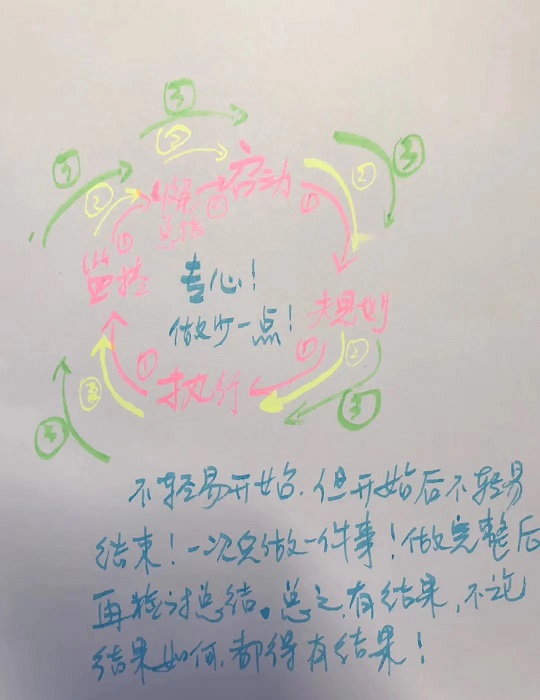 ③
②
③
③
②
收尾
总结
①
启动
①
②
①
监控
专心！
做少一点！
规划
①
②
③
执行
①
②
③
不轻易开始，但开始后不轻易
结束！一次只做一件事！做完整后
再检讨总结。总之，有结果，不论
结果如何，都得有结果！